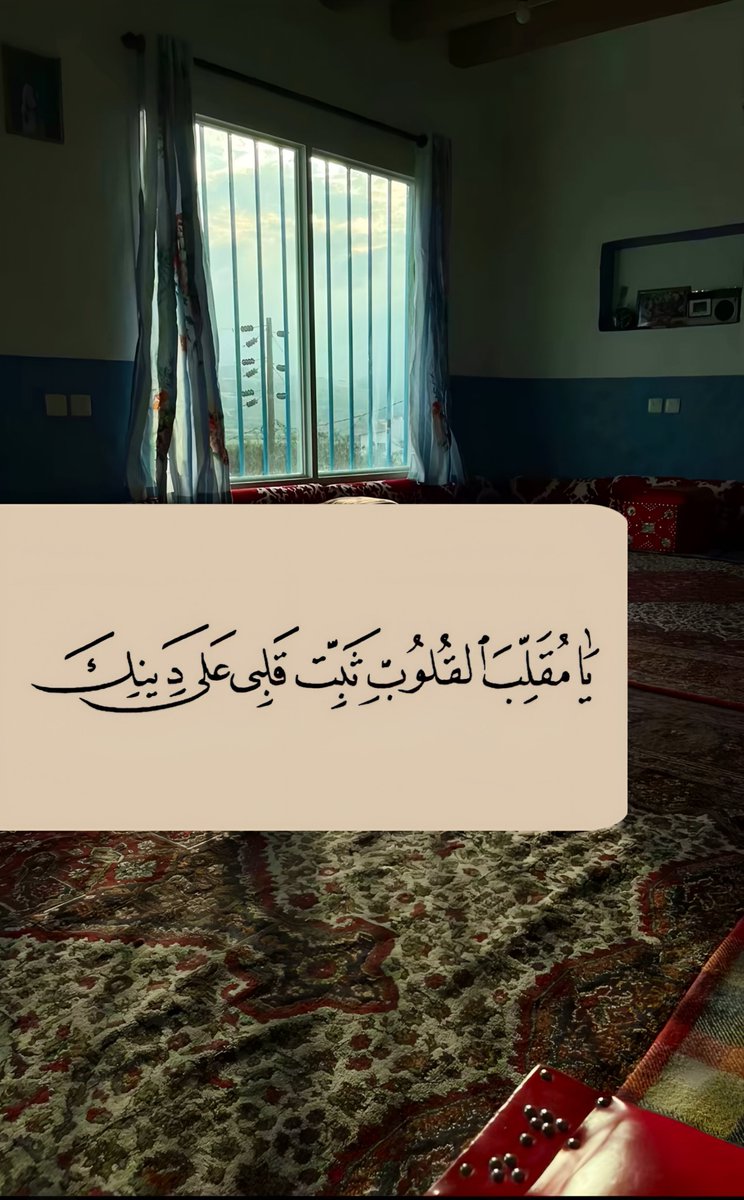 يَٰا مُقَلِّبَ ٱلقُلُوُبِّ ثَبِّت قَلبِى عَلَى دِينِكَ